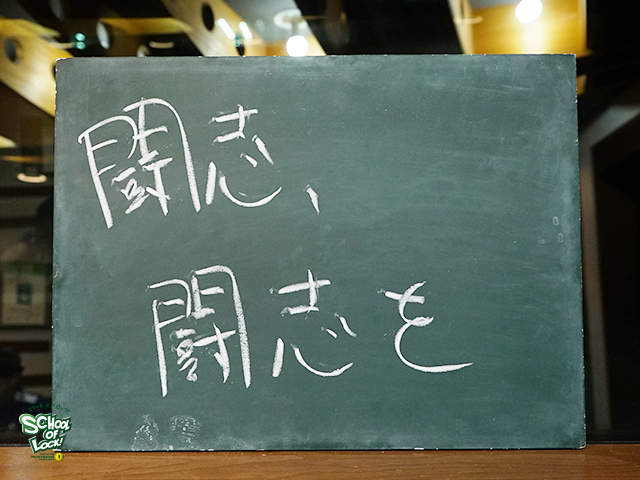 闘志、
闘志を
SCHOOL
OF
LOCK!